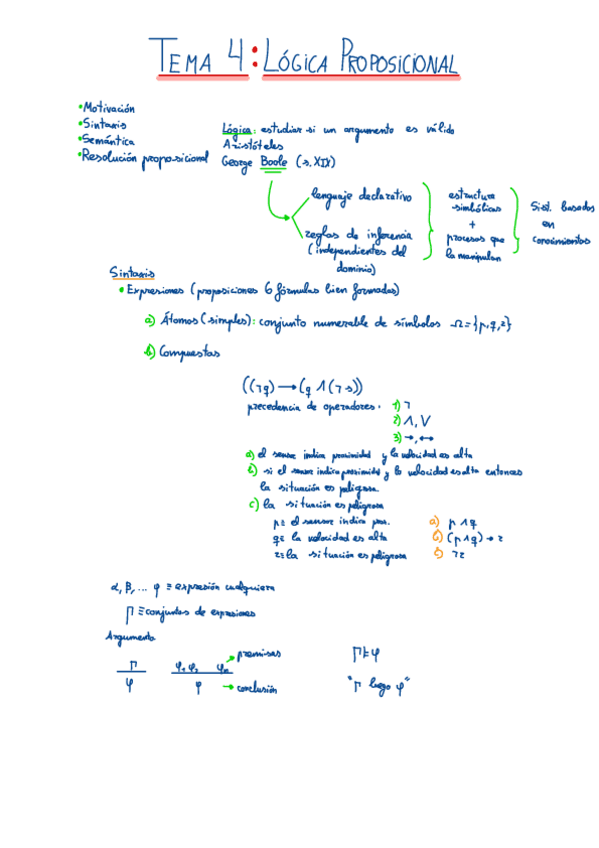 TEMA 4: LÓGICA PROPOSICIONAL
• Motivación
• Sintaxis
• Semántica
• Resolución proposicional
Lógica: estudiar si un argumento es válido
Aristóteles
George Boole (s. XIX)
lenguaje declarativo
reglas de inferencia
(independientes del
dominio)
estructura
simbólicas
+
procesos que
la manipulan
Sist. basados
en
conocimientos
Sintaxis
• Expresiones (proposiciones ó fórmulas bien formadas)
a) Átomos (simples): conjunto numerable de símbolos Ω = {p,q,r}
b) Compuestas
((¬q) → (q ∧ (¬s))
precedencia de operadores. 1) ¬
2) ∧, ∨
3) →, ↔
a) el sensor indica proximidad y la velocidad es alta
b) si el sensor indica proximidad y la velocidad es alta entonces
la situación es peligrosa.
c) la situación es peligrosa
p ≡ el sensor indica prox. a) p ∧ q
q ≡ la velocidad es alta b) (p ∧ q) → r
r ≡ la situación es peligrosa c) ¬r
α, β, ... φ ≡ expresión cualquiera
Γ ≡ conjuntos de expresiones
Argumento
Γ φ₁ φ₂ φₙ → premisas Γ ⊧ φ
φ φ → conclusión "Γ luego φ"